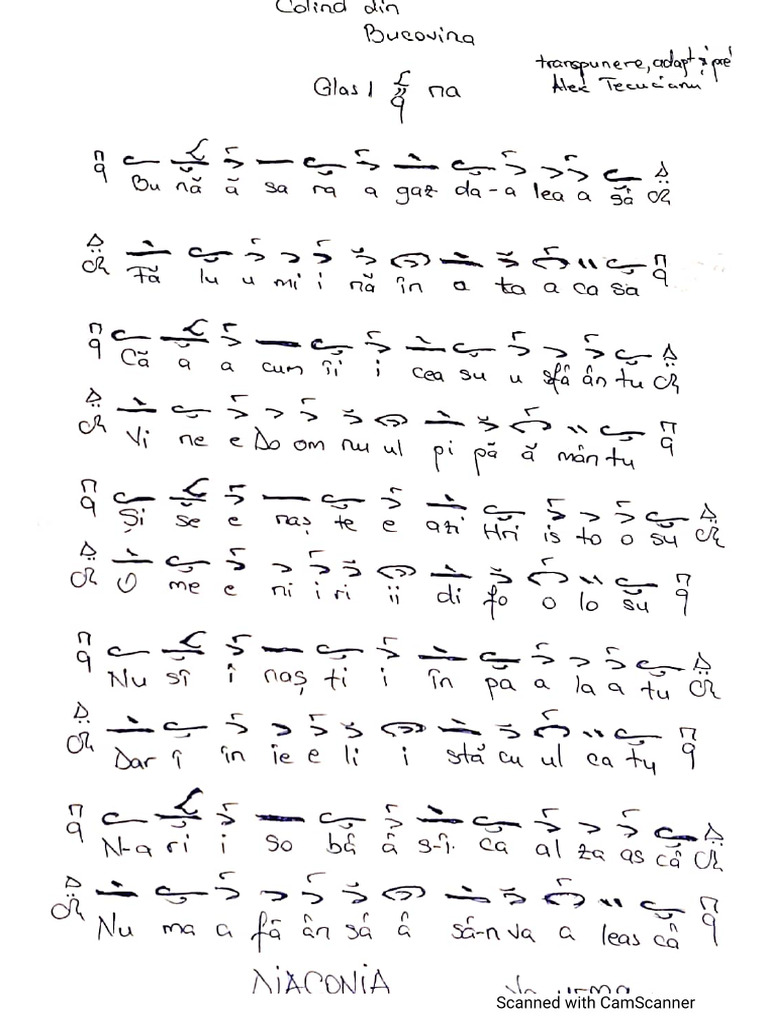 Colind din
Bucovina
transpunere, adapt
Glas 1 πa
Alec Tecucianu
Bu nă ă sa ra a gaz da-a lea a să
Fă lu u mi i nă în a ta a ca sa
Că a a cum îi i cea su u sfâ ân tu
Vi ne e Do om nu ul pi pă ă mân tu
Și se e naș te e azi Hri is to o su
O me e ni i ri ii di fo o lo su
Nu sî î naș ti i în pa a la a tu
Dar î în ie e li i stă cu ul ca tu
N-a ri i so bâ â s-î. ca al za as câ
Nu ma a fâ ân sâ â sâ-n va a leas câ
ΔIACONIA
Scanned with CamScanner